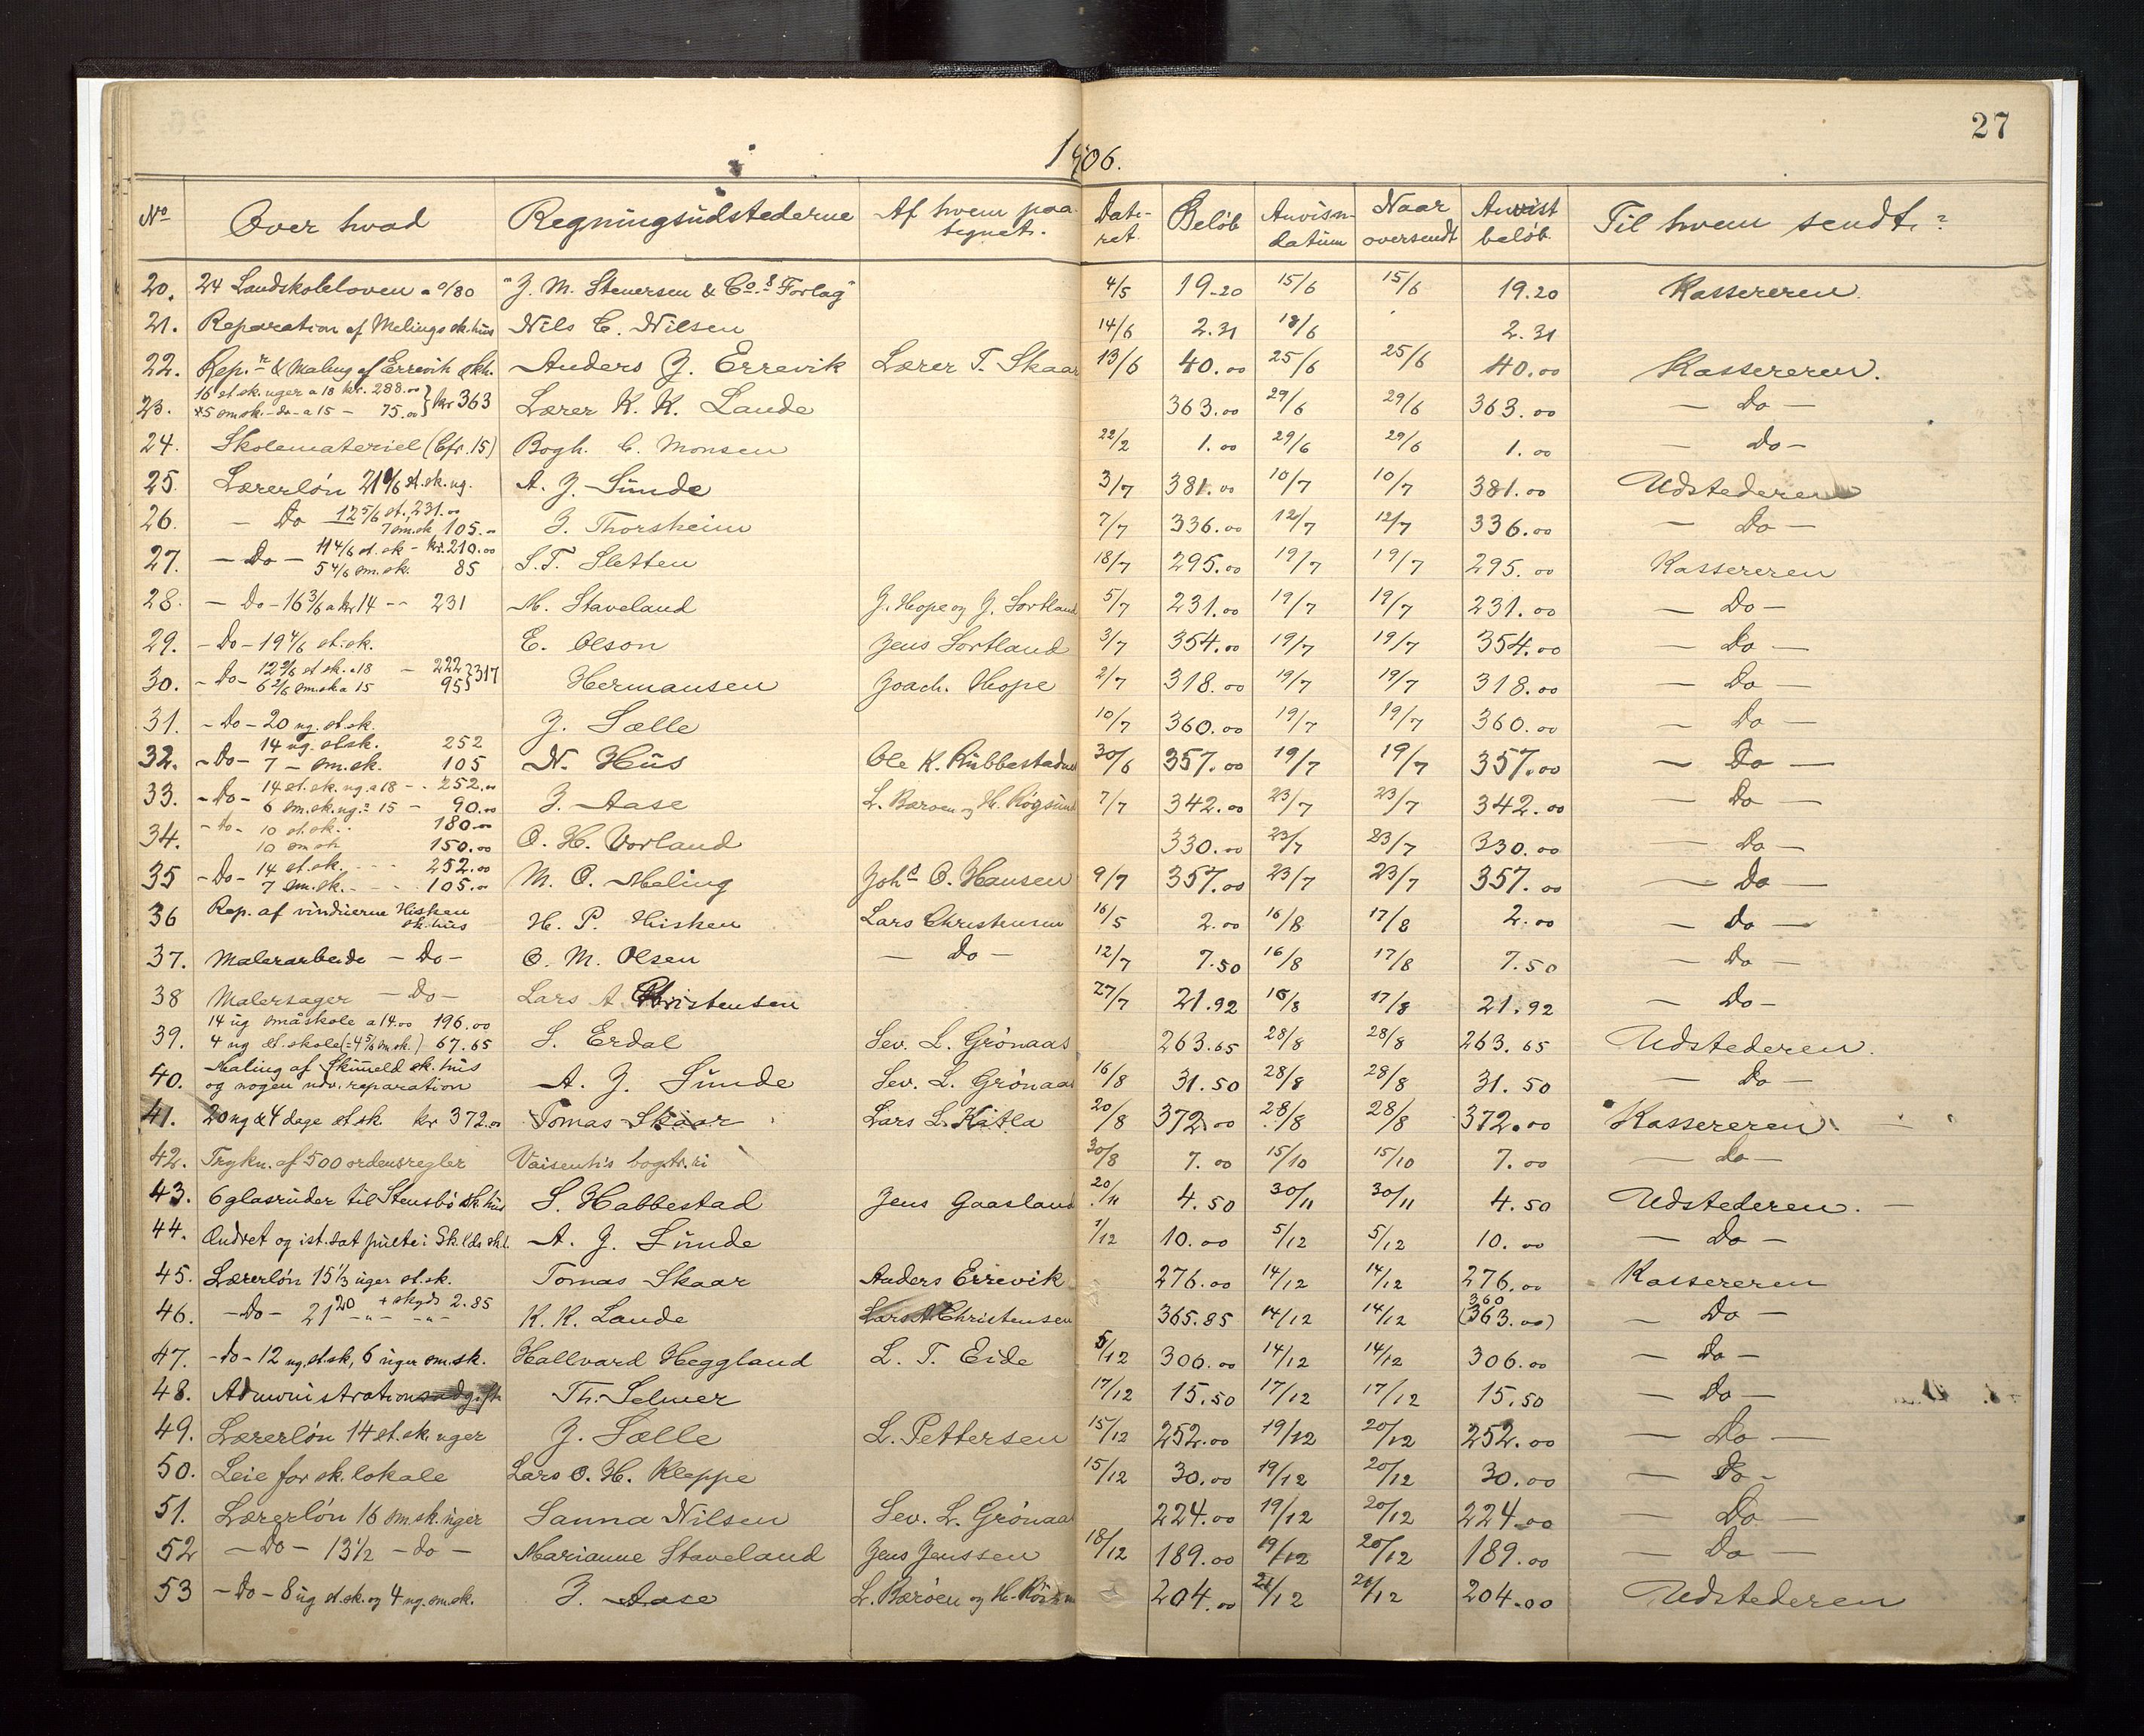 27
1906.
No Over hvad Regningsudstederne Af hvem paategnet. Dateret. Beløb Anvisn-datum Naar oversendt Anvist beløb. Til hvem sendt.
20. 24 Landskoleloven a 0/80 "J. M. Stenersen & Co.s Forlag" 4/5 19.20 15/6 15/6 19.20 Kassereren.
21. Reparation af Melings sk.hus Nils C. Nilsen 14/6 2.31 18/6 2.31
22. Rep.n & Maling af Errevik skh. Anders J. Errevik Lærer T. Skaar 13/6 40.00 25/6 25/6 40.00 Kassereren.
23. 16 st.sk. uger a 18 kr. 288.00 } kr 363
5 sm.sk. - do - a 15 - 75.00 Lærer K. K. Lande 363.00 29/6 29/6 363.00 — Do —
24. Skolemateriel (Cfr. 15) Bogh. C. Monsen 22/2 1.00 29/6 29/6 1.00 — do —
25. Lærerløn 21 1/6 st.sk.ug. A. J. Sunde 3/7 381.00 10/7 10/7 381.00 Udstederen
26. — Do — 12 5/6 st. 231.00
7 sm.sk 105.00 J. Thorsheim 7/7 336.00 12/7 12/7 336.00 — Do —
27. — Do — 11 4/6 st.sk - kr. 210.00
5 4/6 sm.sk. 85 S. T. Sletten 18/7 295.00 19/7 19/7 295.00 Kassereren
28. — Do - 16 3/6 a kr 14 -- 231 M. Staveland J. Hope og J. Sortland 5/7 231.00 19/7 19/7 231.00 — Do —
29. - Do - 19 4/6 st.sk. E. Olson Jens Sortland 3/7 354.00 19/7 19/7 354.00 — Do —
30. - Do - 12 2/6 st.sk. a 18 - 222 } 317
6 2/6 sm.sk a 15 95 Hermansen Joach. Hope 2/7 318.00 19/7 19/7 318.00 — Do —
31. - Do - 20 ug. st.sk. J. Sælle 10/7 360.00 19/7 19/7 360.00 — Do —
32. - Do - 14 ug. st.sk. 252
7 - sm.sk. 105 N. Hus Ole K. Rubbestadn 30/6 357.00 19/7 19/7 357.00 — Do —
33. - Do - 14 st.sk. ug. a 18 - . 252.00
6 sm.sk.ug. a 15 - 90.00 J. Aase L. Bæroen og H. Røgsund 7/7 342.00 23/7 23/7 342.00 — Do —
34. - do - 10 st.sk. . 180.00
10 sm.sk 150.00 O. H. Vorland 330.00 23/7 23/7 330.00 — Do —
35 - Do - 14 st.sk. - - - 252.00
7 sm.sk. - - - 105.00 M. O. Meling Johs O. Hansen 9/7 357.00 23/7 23/7 357.00 — Do —
36 Rep. af vinduerne Hisken
sk.hus H. P. Hisken Lars Christensen 16/5 2.00 16/8 17/8 2.00 — Do —
37. Malerarbeide — Do — O. M. Olsen — do — 12/7 7.50 16/8 17/8 7.50 — Do —
38 Malersager — Do — Lars A. Christensen 27/7 21.92 16/8 17/8 21.92 — Do —
39. 14 ug småskole a 14.00 196.00
4 ug st.skole (= 4 5/6 sm.sk.) 67.65 S. Erdal Sev. L. Grønaas 263.65 28/8 28/8 263.65 Udstederen.
40. Maling af Skumeld sk.hus
og nogen udv. reparation A. J. Sunde Sev. L. Grønaas 16/8 31.50 28/8 28/8 31.50 — Do —
41. 20 ug & 4 dage st.sk kr 372.00 Tomas Skaar Lars L. Katla 20/8 372.00 28/8 28/8 372.00 Kassereren.
42. Trykn. af 500 ordensregler Vaisenh's bogtr.ri 30/8 7.00 15/10 15/10 7.00 — do —
43. 6 glasruder til Stensbø sk.hus S. Habbestad Jens Gaasland 20/11 4.50 30/11 30/11 4.50 Udstederen. —
44. Ændret og ist.sat pulte i Sk.lds sk.l. A. J. Sunde 1/12 10.00 5/12 5/12 10.00 — Do —
45. Lærerløn 15 1/3 uger st.sk. Tomas Skaar Anders Errevik 276.00 14/12 14/12 276.00 Kassereren
46. — Do — 20 + skyds 2.85 K. K. Lande Lars A. Christensen 365.85 14/12 14/12 360 (363.00) — Do —
47. - do - 12 ug. st.sk, 6 uger sm.sk. Hallvard Heggland L. T. Eide 5/12 306.00 14/12 14/12 306.00 — Do —
48. Administrationsudgift Th. Selmer 17/12 15.50 17/12 17/12 15.50 — Do —
49. Lærerløn 14 st.sk. uger J. Sælle L. Pettersen 15/12 252.00 19/12 20/12 252.00 — Do —
50. Leie for sk.lokale Lars O. H. Kleppe 15/12 30.00 19/12 20/12 30.00 — Do —
51. Lærerløn 16 sm.sk. uger Sanna Nilsen Sev. L. Grønaas 224.00 19/12 20/12 224.00 — Do —
52 — Do — 13 1/2 — do — Marianne Staveland Jens Jenssen 18/12 189.00 19/12 20/12 189.00 — Do —
53 — Do — 8 ug st.sk. og 4 ug. sm.sk. J. Aase L. Bærøen og H. 204.00 21/12 21/12 204.00 Udstederen